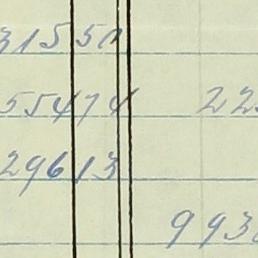 31550
55474 22
29613
993